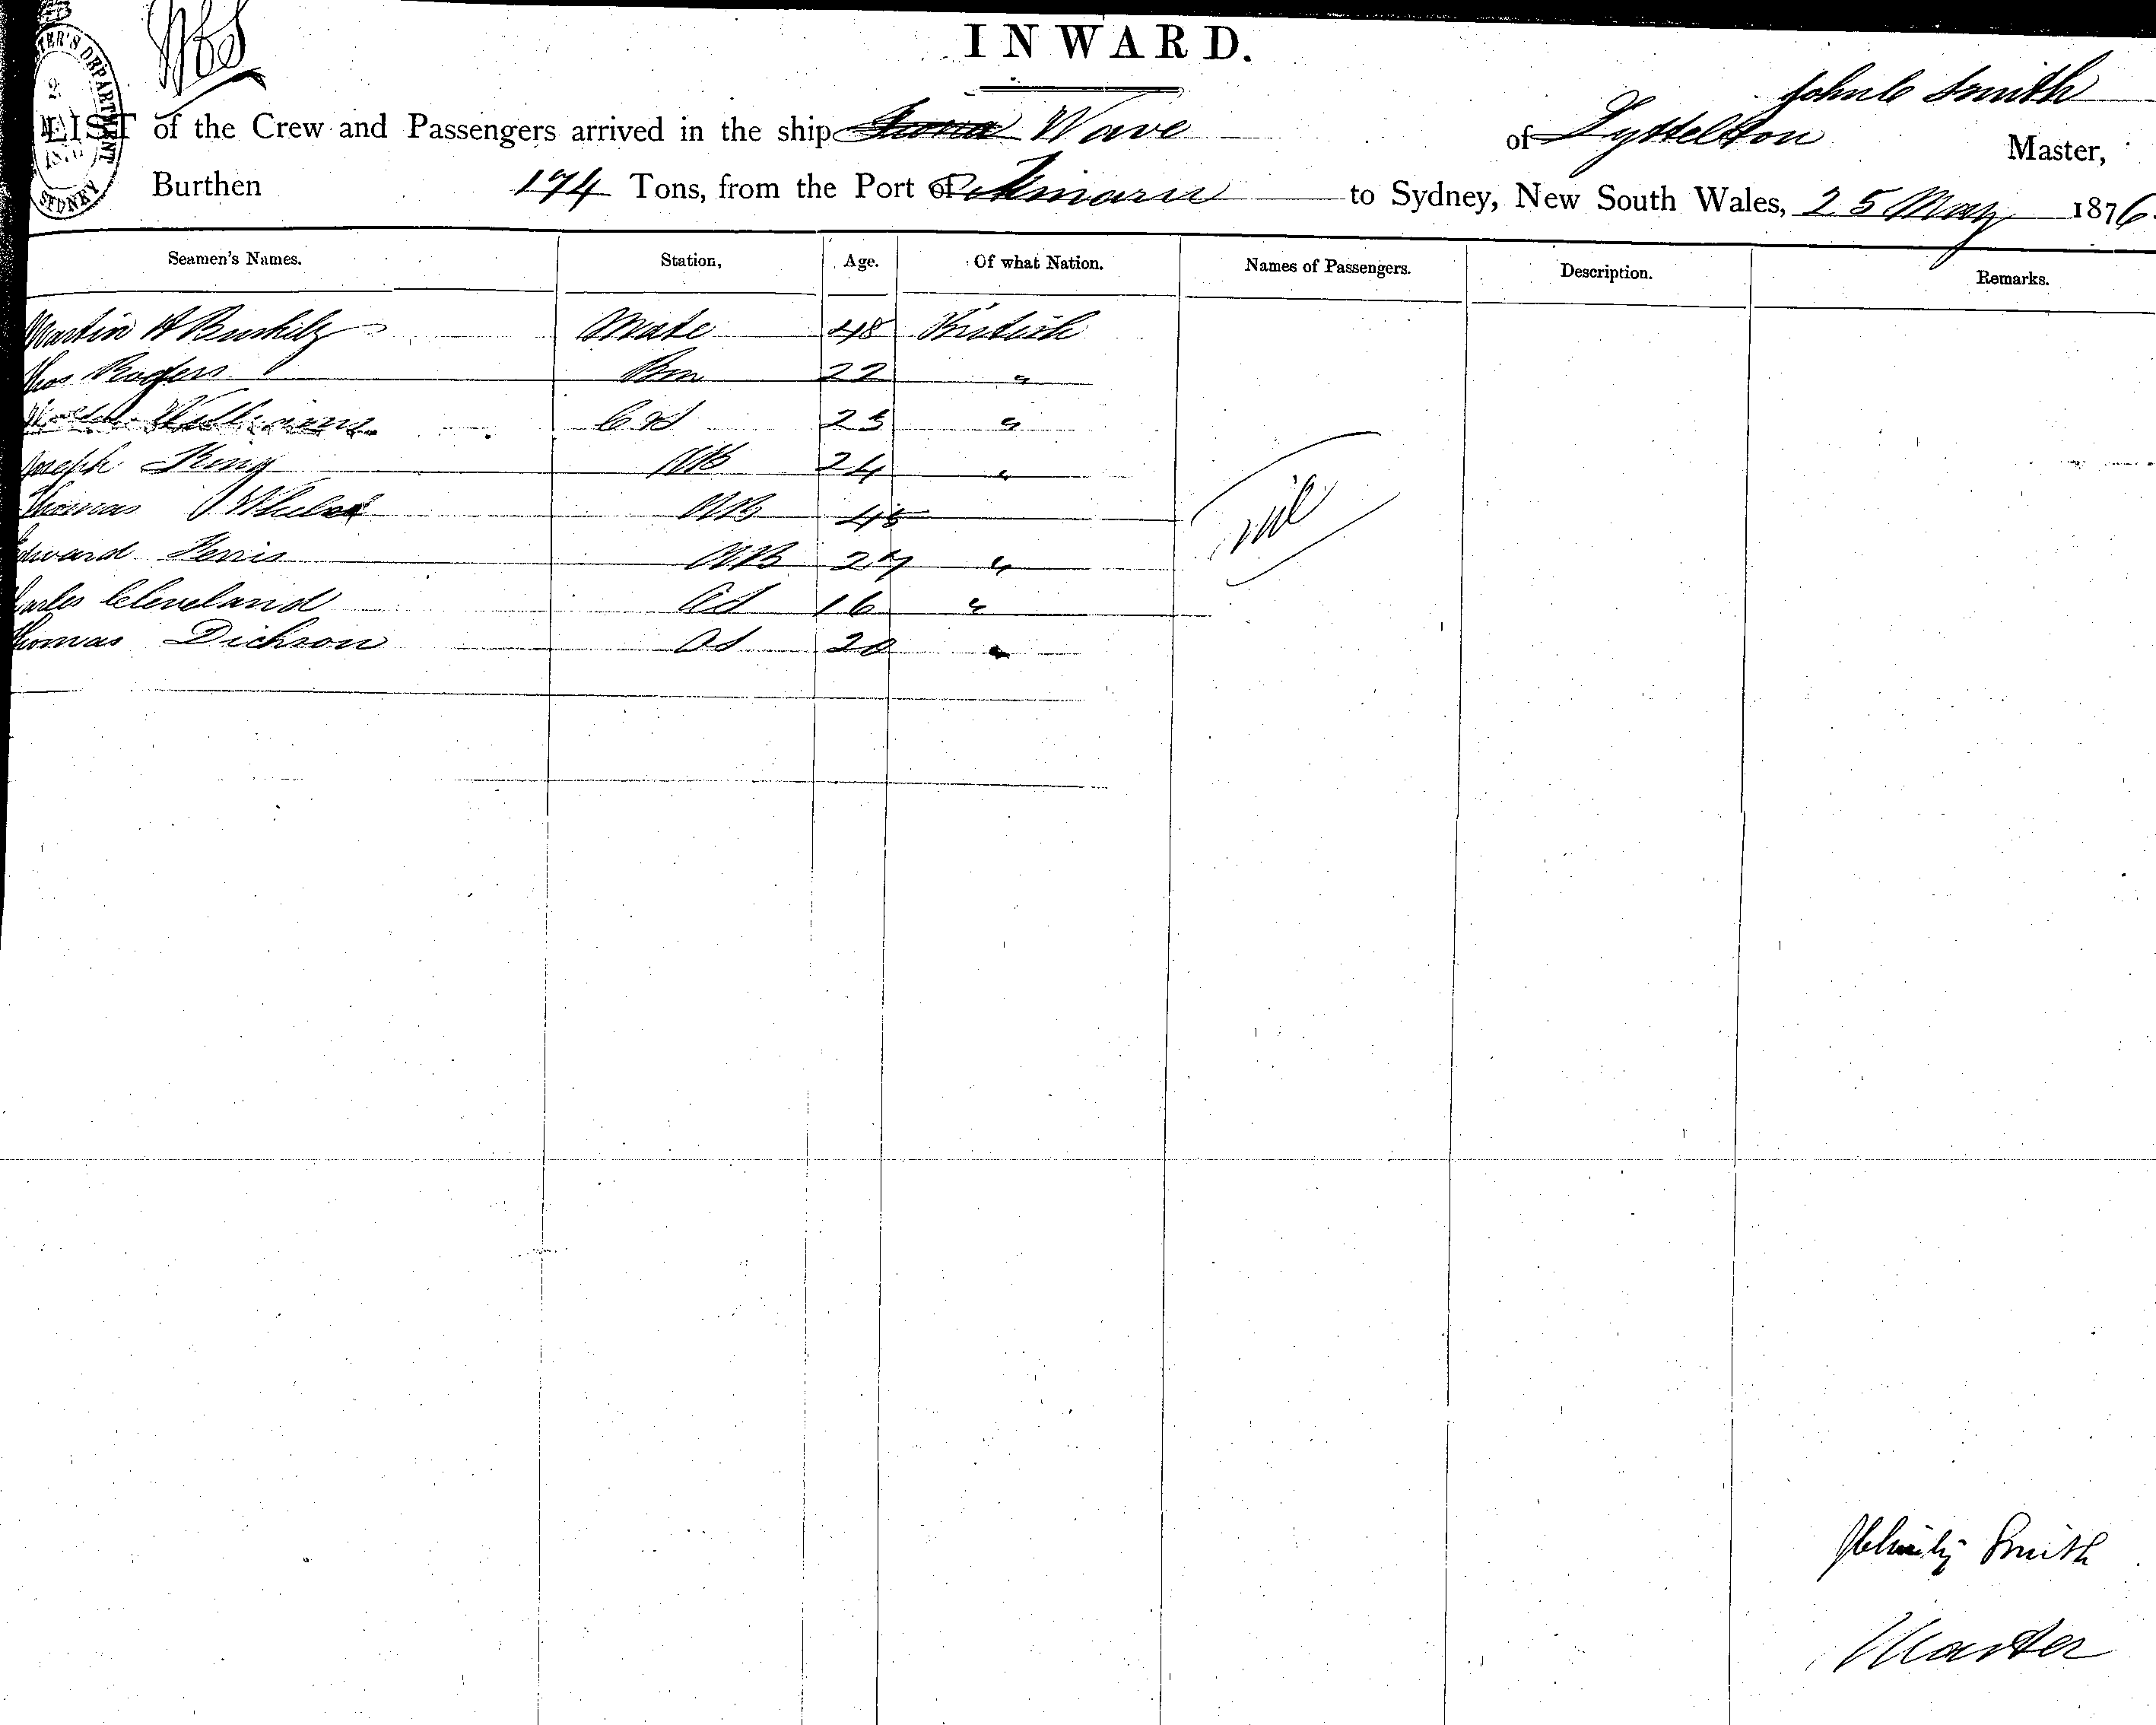 INWARD.
John C Smith
LIST of the Crew and Passengers arrived in the ship Wave of Lyttelton Master,
Burthen 174 Tons, from the Port of to Sydney, New South Wales, 25 May 1876.
Seamen's Names. Station, Age. Of what Nation. Names of Passengers. Description. Remarks.
Martin A Mate 48 British
Thos Rogers Bm 22 "
Williams 23 "
Joseph King AB 24 "
Thomas AB 45
nil
Edward Ferris AB 27 "
Charles Cleveland Od 16 "
Thomas Dickson Od 20 "
Smith
Master